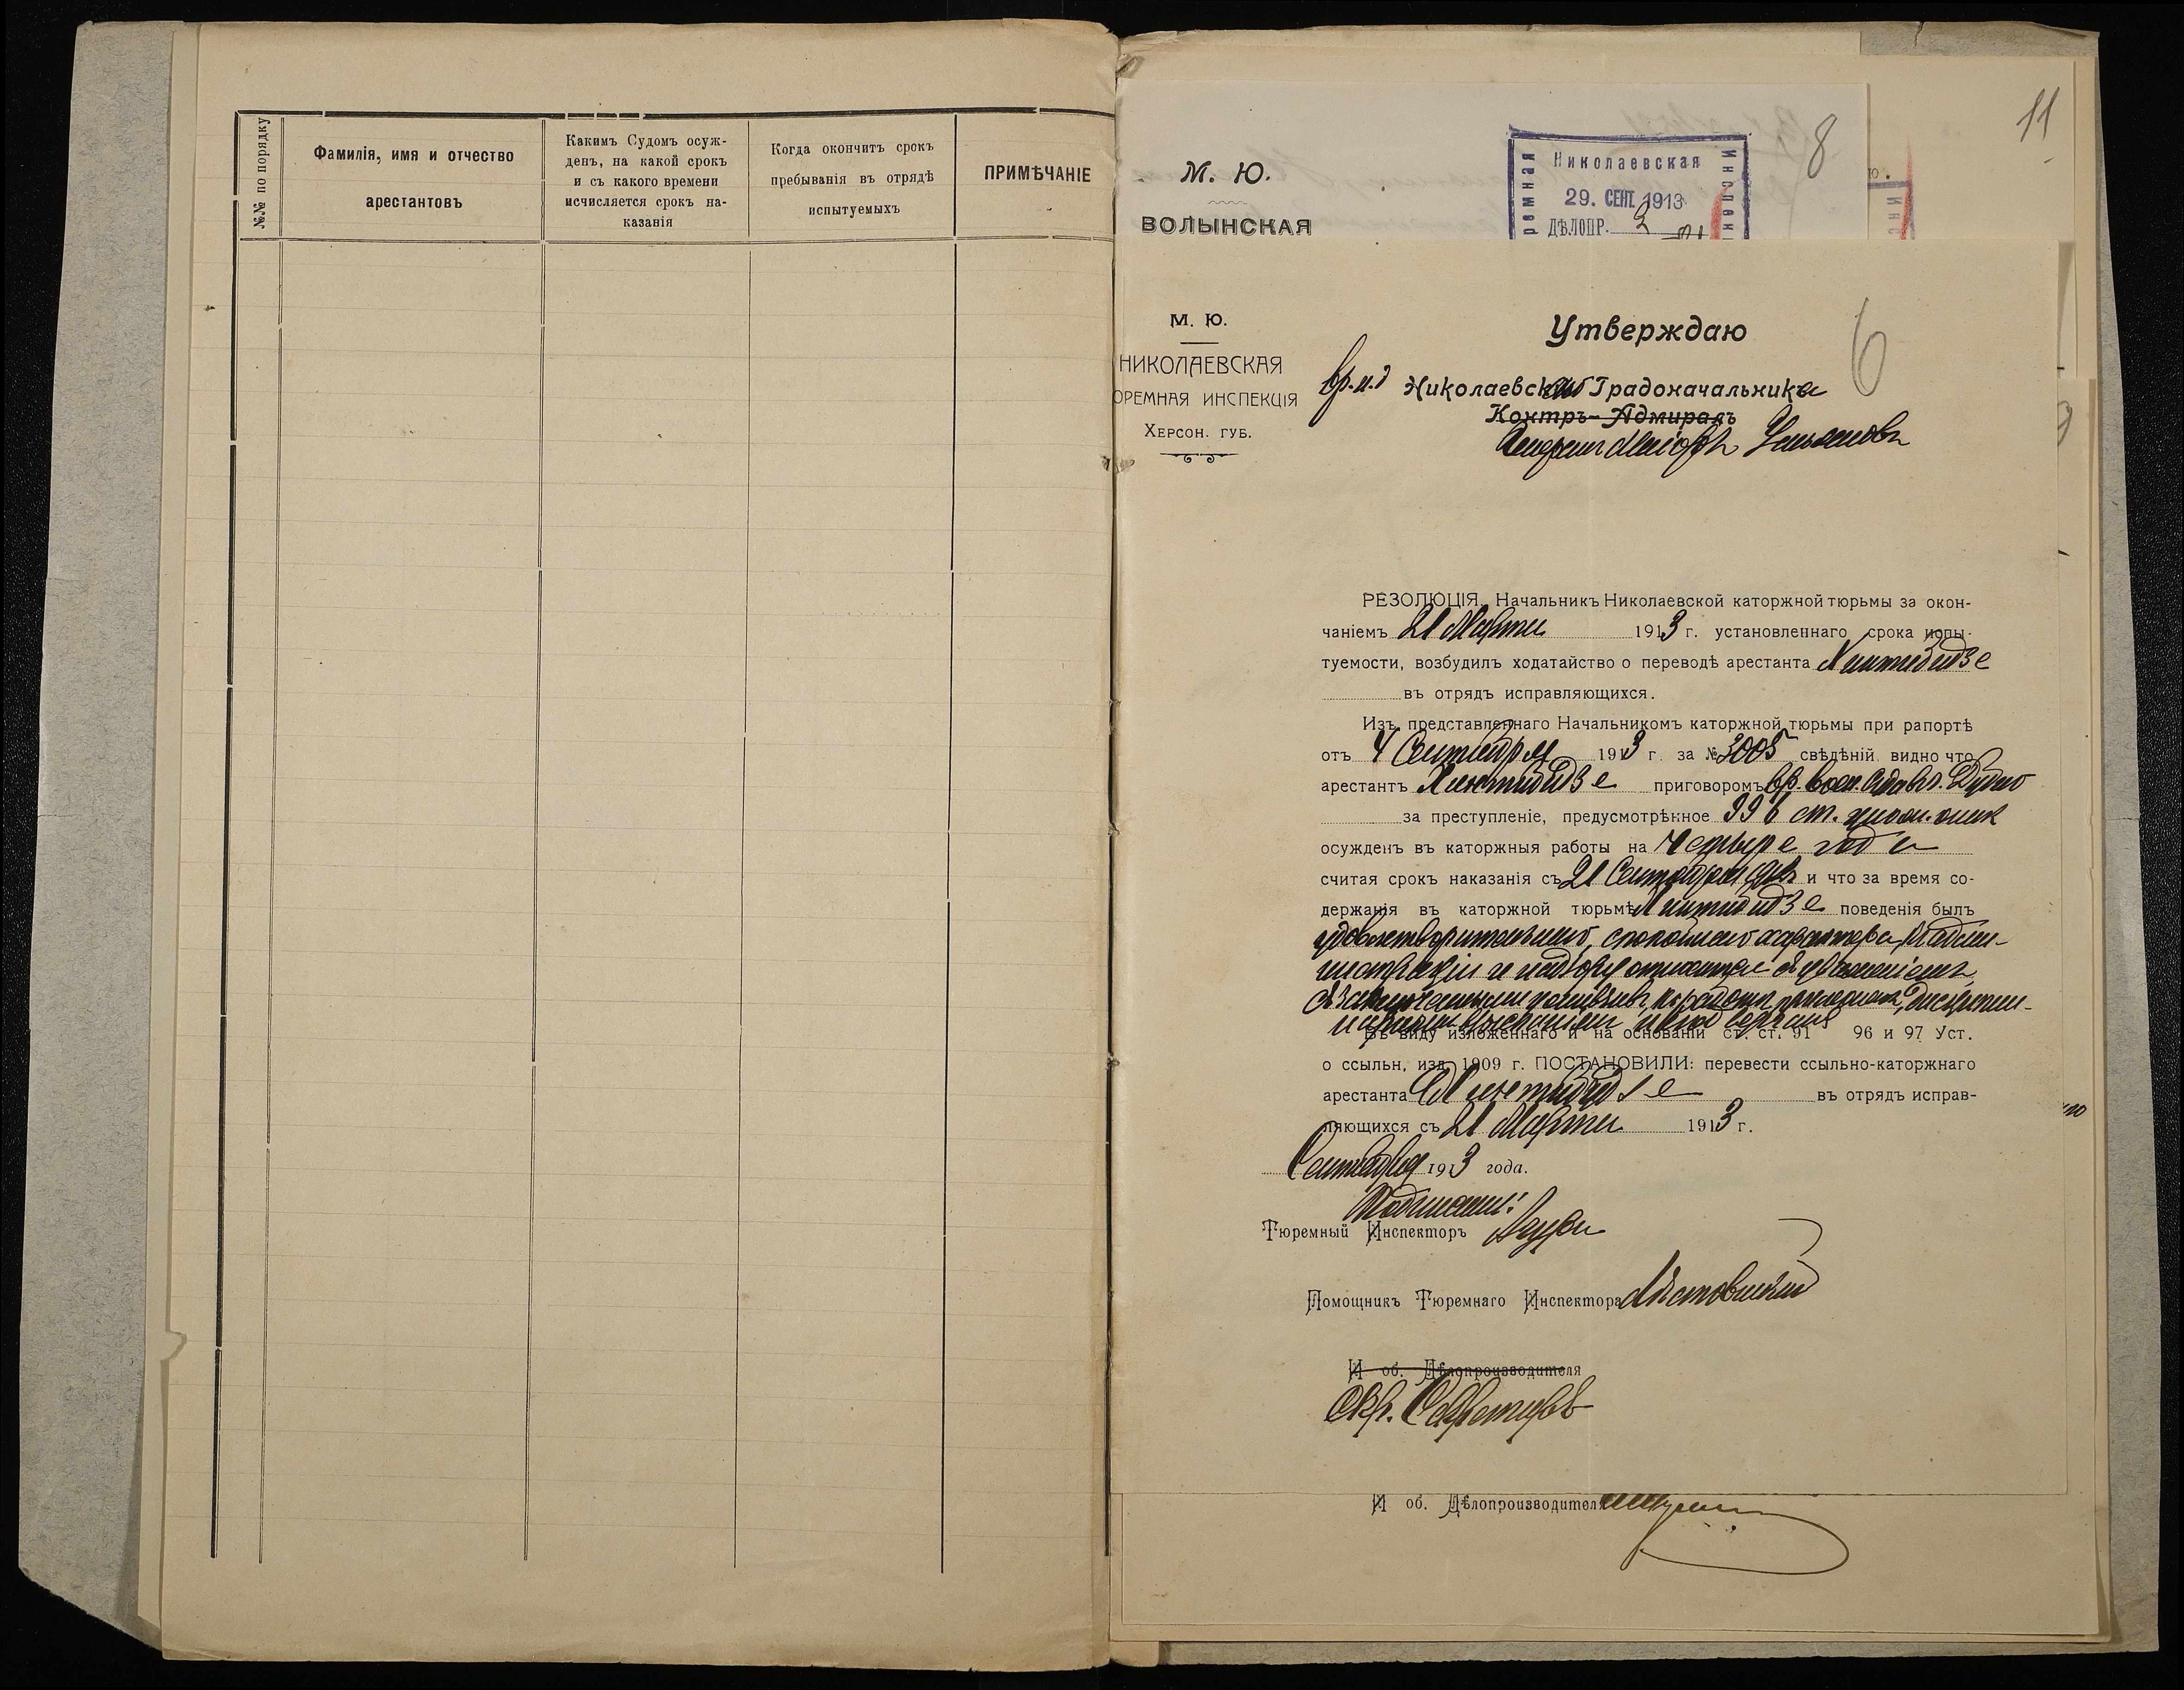 №№ по порядку
Фамилія, имя и отчество
арестантовъ
Какимъ Судомъ осуж-
денъ, на какой срокъ
и съ какого времени
исчисляется срокъ на-
казанія
Когда окончитъ срокъ
пребыванія въ отрядѣ
испытуемыхъ
ПРИМѢЧАНІЕ
11
8
М. Ю.
ВОЛЫНСКАЯ
Николаевская
29. СЕНТ. 1913
ДѢЛОПР. 3
М. Ю.
НИКОЛАЕВСКАЯ
ОРЕМНАЯ ИНСПЕКЦІЯ
ХЕРСОН. ГУБ.
6
Утверждаю
Вр. и. д Николаевскаго Градоначальника
Контръ-Адмиралъ
Генералъ Маіоръ
РЕЗОЛЮЦІЯ. Начальникъ Николаевской каторжной тюрьмы за окон-
чаніемъ 21 Марта 1913 г. установленнаго срока испы-
туемости, возбудилъ ходатайство о переводѣ арестанта
въ отрядъ исправляющихся.
Изъ представленнаго Начальникомъ каторжной тюрьмы при рапортѣ
отъ 4 Сентября 1913 г. за № 3005 свѣдѣній видно что
арестантъ приговоромъ Вр. Воен. Суда въ г.
за преступленіе, предусмотрѣнное 996 ст.
осужденъ въ каторжныя работы на Четыре года
считая срокъ наказанія съ 21 Сентября и что за время со-
держанія въ каторжной тюрьмѣ поведенія былъ
удовлетворительнаго, спокойнаго характера, къ адми-
нистраціи и надзору относится съ уваженіемъ,
дисципли-
нарнымъ взысканіямъ
Въ виду изложеннаго и на основаніи ст. ст. 91 96 и 97 Уст.
о ссыльн, изд. 1909 г. ПОСТАНОВИЛИ: перевести ссыльно-каторжнаго
арестанта въ отрядъ исправ-
ляющихся съ 21 Марта 1913 г.
Сентября 1913 года.
Подписали:
Тюремный Инспекторъ
Помощникъ Тюремнаго Инспектора
И об. Дѣлопроизводителя
И об. Дѣлопроизводителя